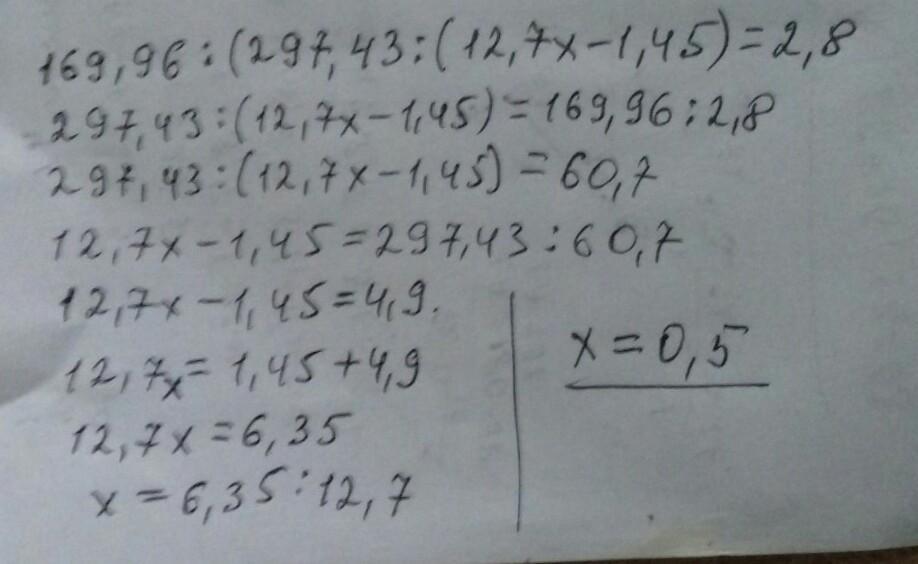 169,96:(297,43:(12,7x-1,45)=2,8
297,43:(12,7x-1,45)=169,96:2,8
297,43:(12,7x-1,45)=60,7
12,7x-1,45=297,43:60,7
12,7x-1,45=4,9.
12,7x=1,45+4,9
12,7x=6,35
x=6,35:12,7
x=0,5